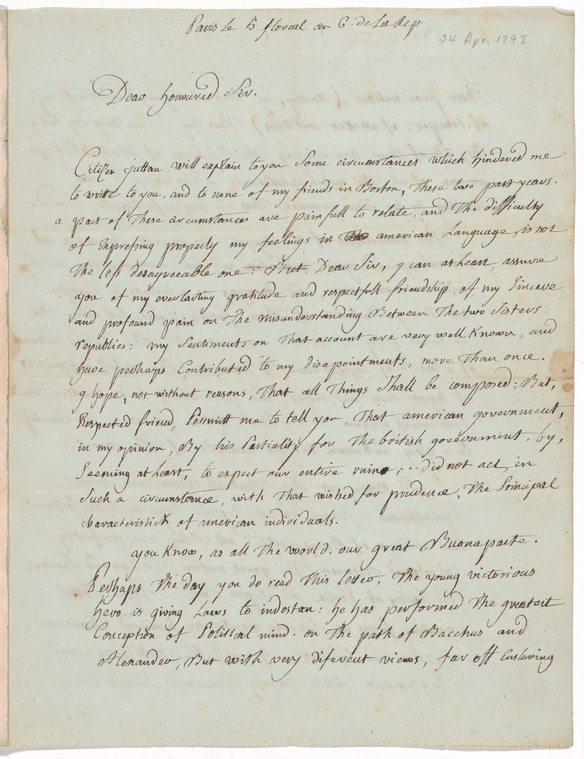 Paris le 5 floreal an 6. de La Rep.
24 Apr. 1798
Dear honoured Sir.
Citizen juttau will explain to you Some circumstances which hindered me
to write to you, and to none of my friends in Boston, These two past years.
a part of These circumstances are painfull to relate, and The difficulty
of Expressing properly my feelings in american Language, is not
The less desagreeable one: But, Dear Sir, y can at least, assure
you of my everlasting gratitude and respectfull friendship, of my Sincere
and profound pain on The misunderstanding Between The two Sisters
republics: my Sentiments on That account are very well Known, and
have perhaps Contributed to my disapointments, more Than once.
y hope, not without reasons, That all Things Shall be composed: But,
Respected friend, Permitt me to tell you That american government,
in my opinion, By his Partiality for The british government, by,
Seeming at heart, to expect our entire ruine, .. did not act, in
Such a circumstance, with That wished for prudence, The Principal
characteristick of american individuals.
you Know, as all The world. our great Buonaparte.
Perhaps The day you do read This letter, The young victorious
hero is giving Laws to indostan: he has performed The greatest
Conception of Political mind. on The path of Bacchus and
Alexander, But with very diferent views, far off Enslaving